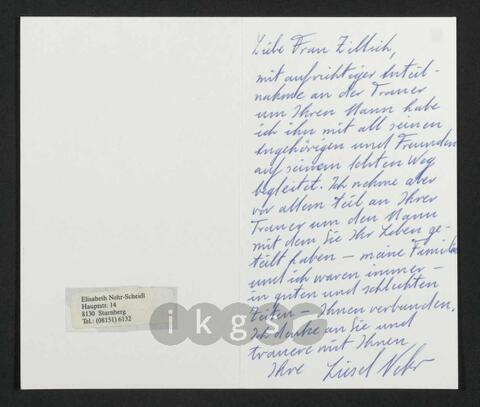 Liebe Frau Zillich,
mit aufrichtiger Anteil-
nahme an der Trauer
um Ihren Mann habe
ich ihn mit all seinen
Angehörigen und Freunden
auf seinem letzten Weg
begleitet. Ich nehme aber
vor allem teil an Ihrer
Trauer um den Mann
mit dem Sie Ihr Leben ge-
teilt haben – meine Familie
und ich waren immer –
in guten und schlechten
Zeiten – Ihnen verbunden.
Ich denke an Sie und
trauere mit Ihnen
Ihre Liesel Nehr
Elisabeth Nehr-Scheidl
Hauptstr. 14
8130 Starnberg
Tel.: (08151) 6132
ikgs